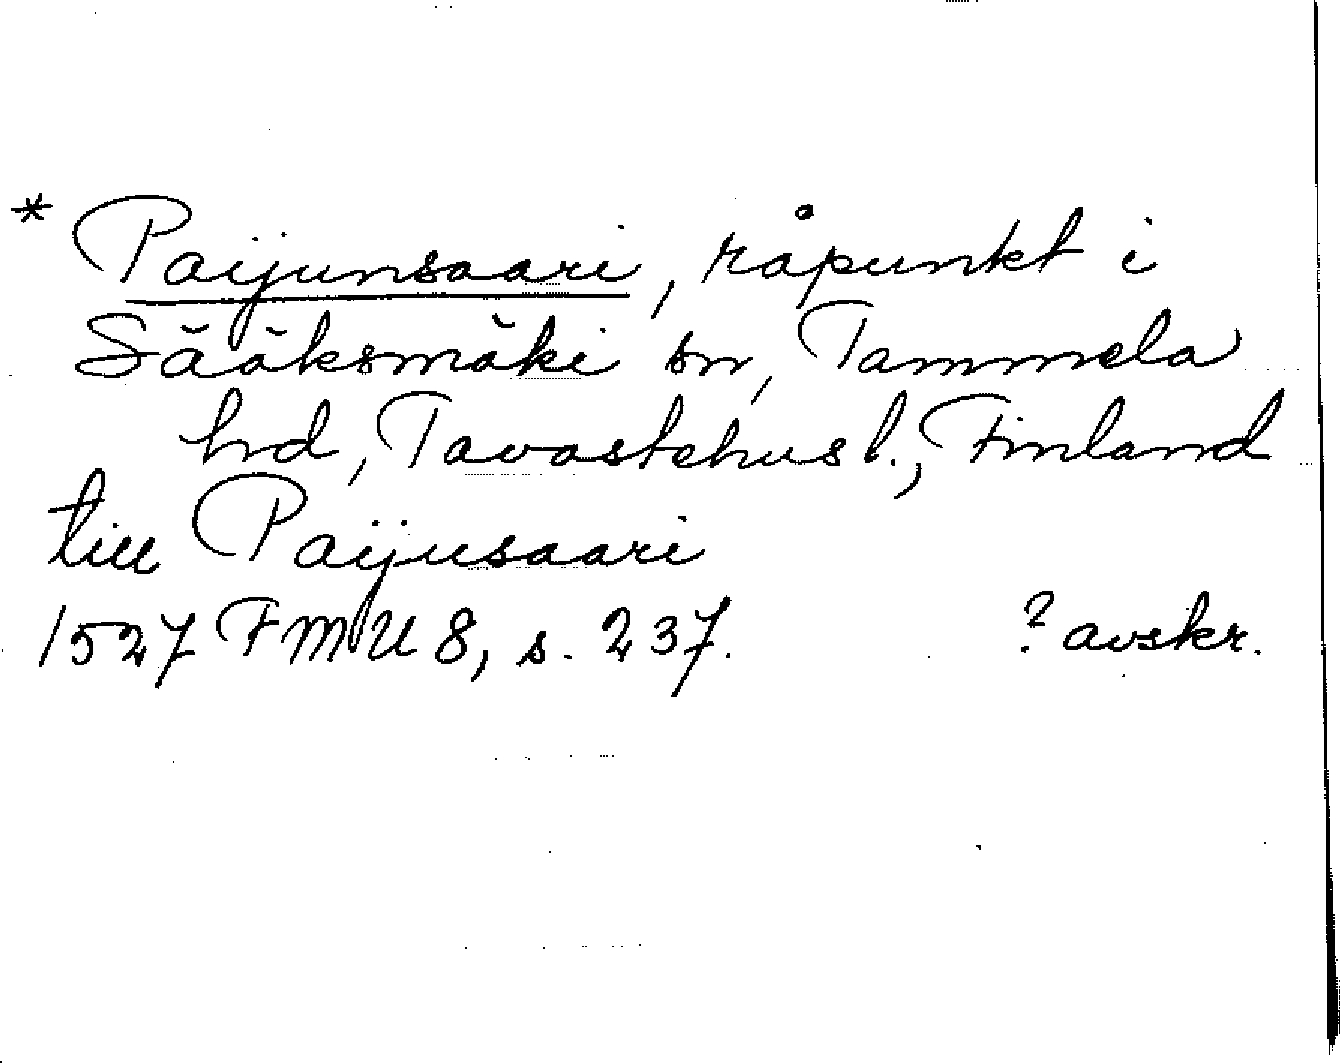 * Paijunsaari, råpunkt i
Sääksmäki sn, Tammela
hd, Tavastehus l., Finland
till Paijusaari
1527 FMU 8, s. 237. ? avskr.